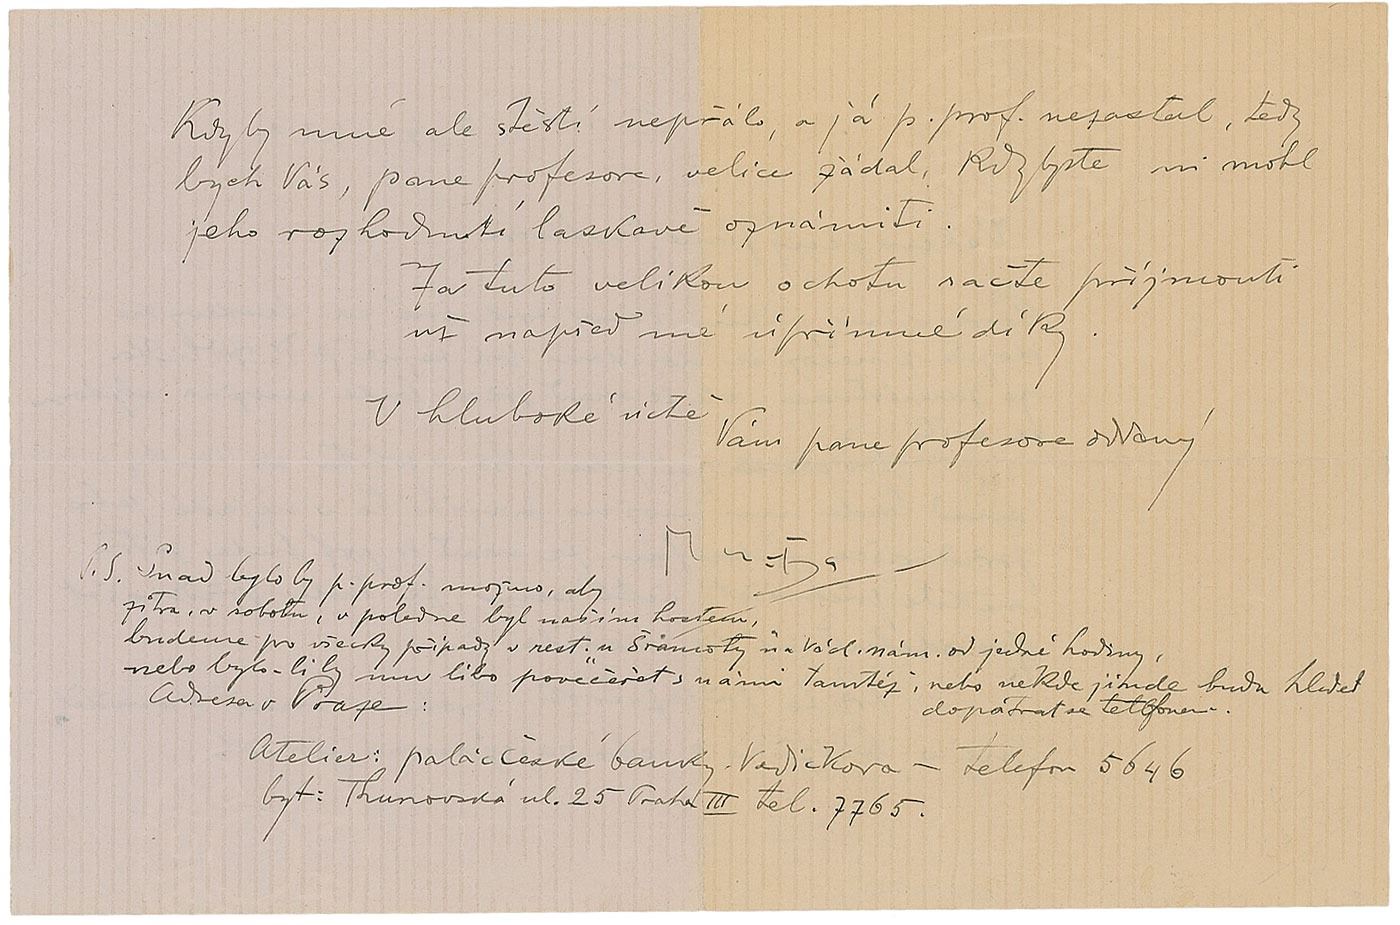 Kdyby mně ale štěstí nepřálo, a já p. prof. nezastal, tedy
bych Vás, pane profesore, velice žádal, kdybyste mi mohl
jeho rozhodnutí laskavě oznámiti.
Za tuto velikou ochotu račte příjmouti
už napřed mé úpřímné díky.
V hluboké úctě
Vám pane profesore oddaný
Mucha
P.S. Snad bylo by p. prof. možno, aby
zítra, v sobotu, v poledne byl naším hostem,
budeme pro všecky případy v rest. u Šramoty na Václ. nám. od jedné hodiny,
nebo bylo-li by mu libo povečeřet s námi tamtéž, nebo někde jinde budu hledět
dopátrat se telefonem.
Adresa v Praze:
Atelier: palác České banky. Vodičkova — telefon 5646
byt: Thunovská ul. 25 Praha III tel. 7765.